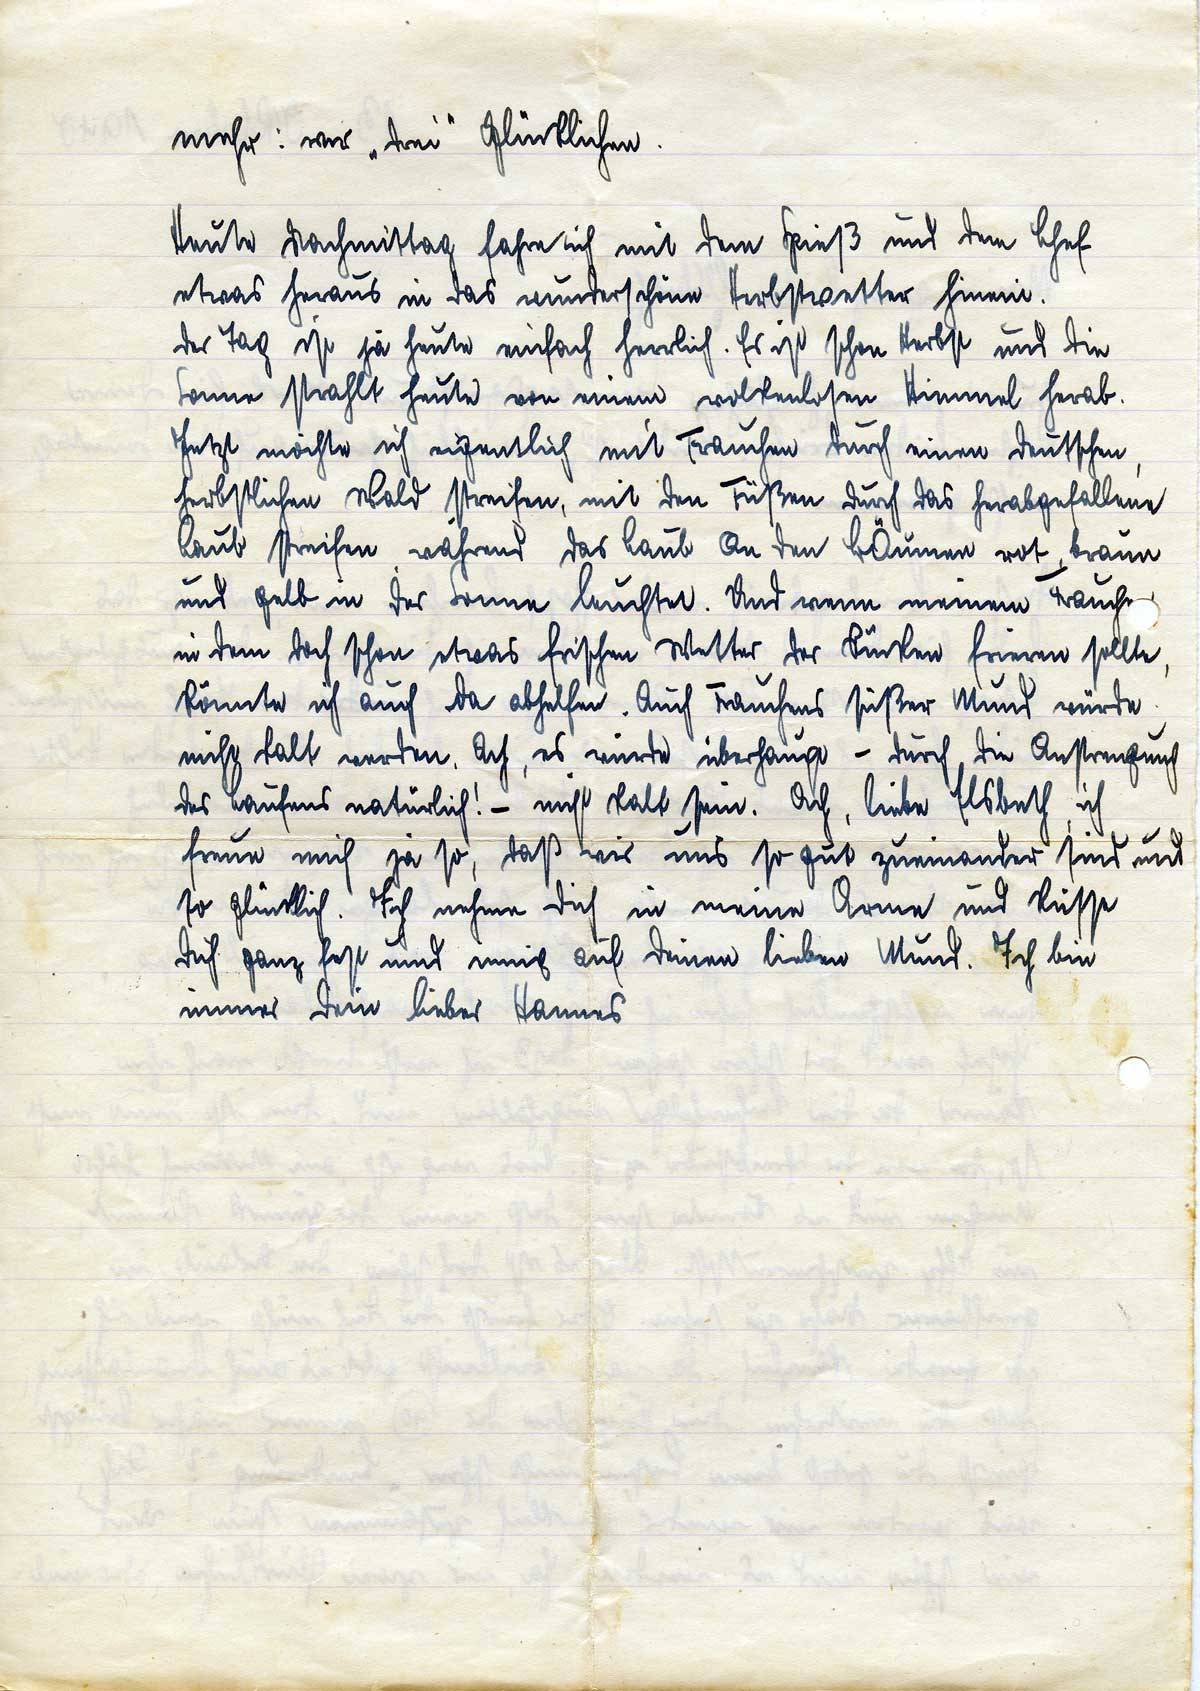 mehr: wir „drei“ Glücklichen.
Heute Nachmittag fahre ich mit dem Spieß und dem Chef
etwas heraus in das wunderschöne Herbstwetter hinein.
Der Tag ist ja heute einfach herrlich. Es ist schon Herbst und die
Sonne strahlt heute von einem wolkenlosen Himmel herab.
Jetzt möchte ich eigentlich mit Frauchen durch einen deutschen,
herbstlichen Wald streifen, mit den Füßen durch das herabgefallene
Laub streifen, während das Laub an den Bäumen rot, braun
und gelb in der Sonne leuchtet. Und wenn meinem Frauche
in dem doch schon etwas frischen Wetter der Rücken frieren sollte,
könnte ich auch da abhelfen. Auch Frauchens süßer Mund würde
nicht kalt werden. Ach, es würde überhaupt – durch die Anstrengung
des Laufens natürlich! – nicht kalt sein. Ach, liebe Elsbeth, ich
freue mich ja so, daß wir uns so gut zueinander sind und
so glücklich. Ich nehme Dich in meine Arme und küsse
Dich ganz fest und innig auf Deinen lieben Mund. Ich bin
immer Dein lieber Hannes